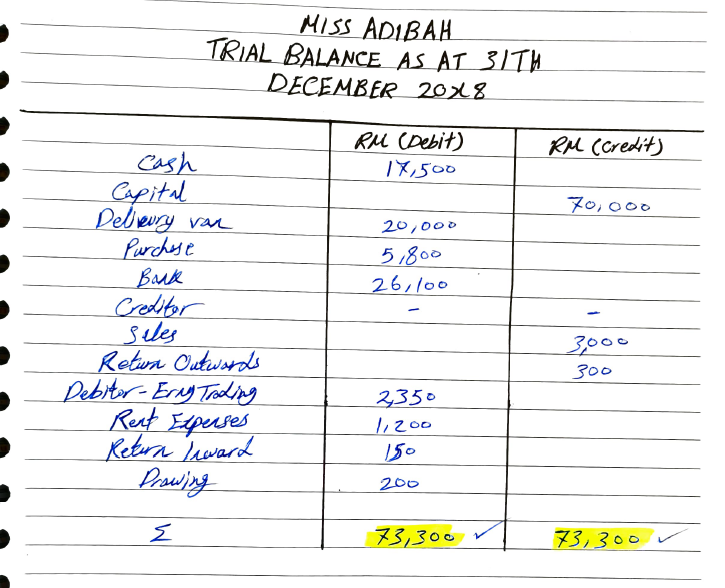 MISS ADIBAH
TRIAL BALANCE AS AT 31TH
DECEMBER 20X8
RM (Debit) RM (Credit)
Cash 17,500
Capital 70,000
Delivery van 20,000
Purchase 5,800
Bank 26,100
Creditor - -
Sales 3,000
Return Outwards 300
Debitor - Erny Trading 2,350
Rent Expenses 1,200
Return Inward 150
Drawing 200
Σ 73,300 ✓ 73,300 ✓